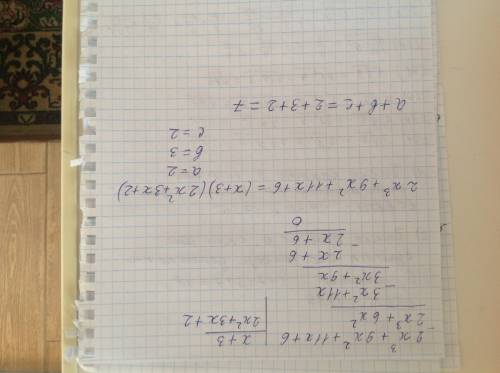 2x³ + 9x² + 11x + 6 | x + 3
2x³ + 6x² | 2x² + 3x + 2
3x² + 11x
3x² + 9x
2x + 6
2x + 6
0
2x³ + 9x² + 11x + 6 = (x+3)(2x²+3x+2)
a = 2
b = 3
c = 2
a + b + c = 2 + 3 + 2 = 7